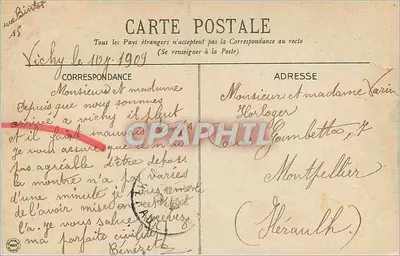 rue Bintot
15
CARTE POSTALE
Tous les Pays étrangers n'acceptent pas la Correspondance au recto
(Se renseigner à la Poste)
Vichy le 1909
CORRESPONDANCE
Monsieur et madame
Depuis que nous sommes
arrivé a vichy il pleut
et il fait mauvais
je vous assure que ce n'a
pas agréable d'être dehors
la montre n'a pas variés
d'une minute je vous remercie
de l'avoir mise
l'a. je vous salue recevez
ma parfaite civilité
Bénézet
ADRESSE
Monsieur et madame Varin
Horloger
Gambetta, 7
Montpellier
(Hérault)
CPAPHIL